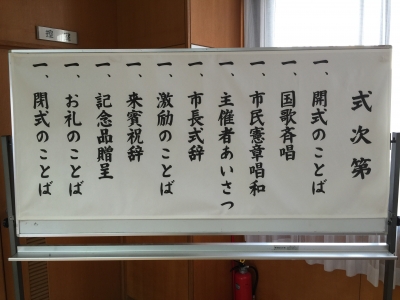 式次第
一、開式のことば
一、国歌斉唱
一、市民憲章唱和
一、主催者あいさつ
一、市長式辞
一、激励のことば
一、来賓祝辞
一、記念品贈呈
一、お礼のことば
一、閉式のことば